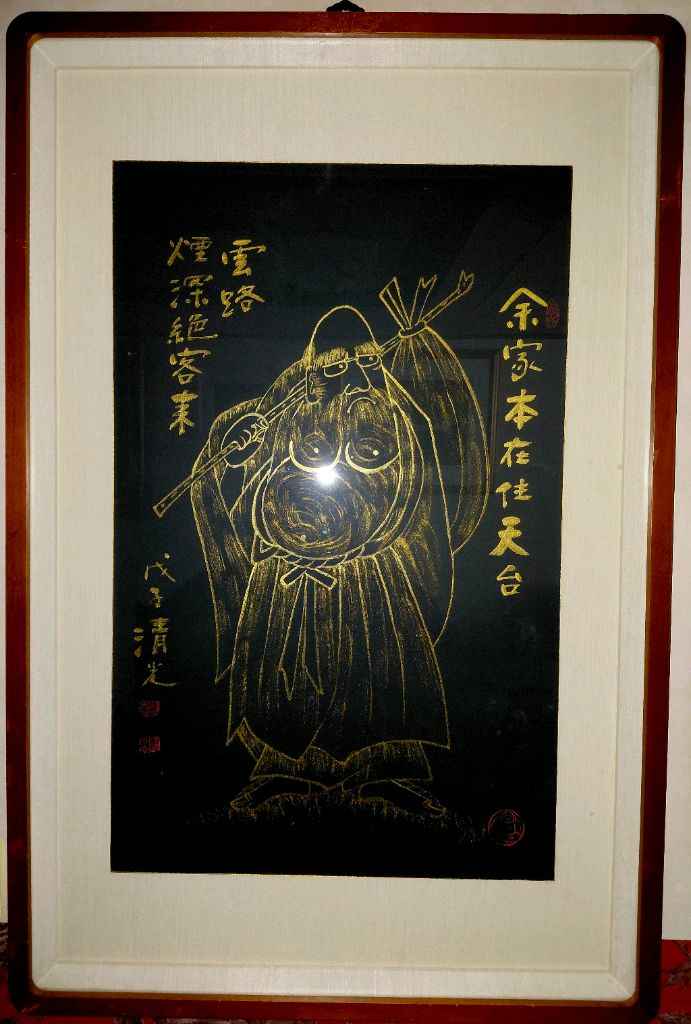 余家本在住天台
雲路
煙深絕客來
戊子清光